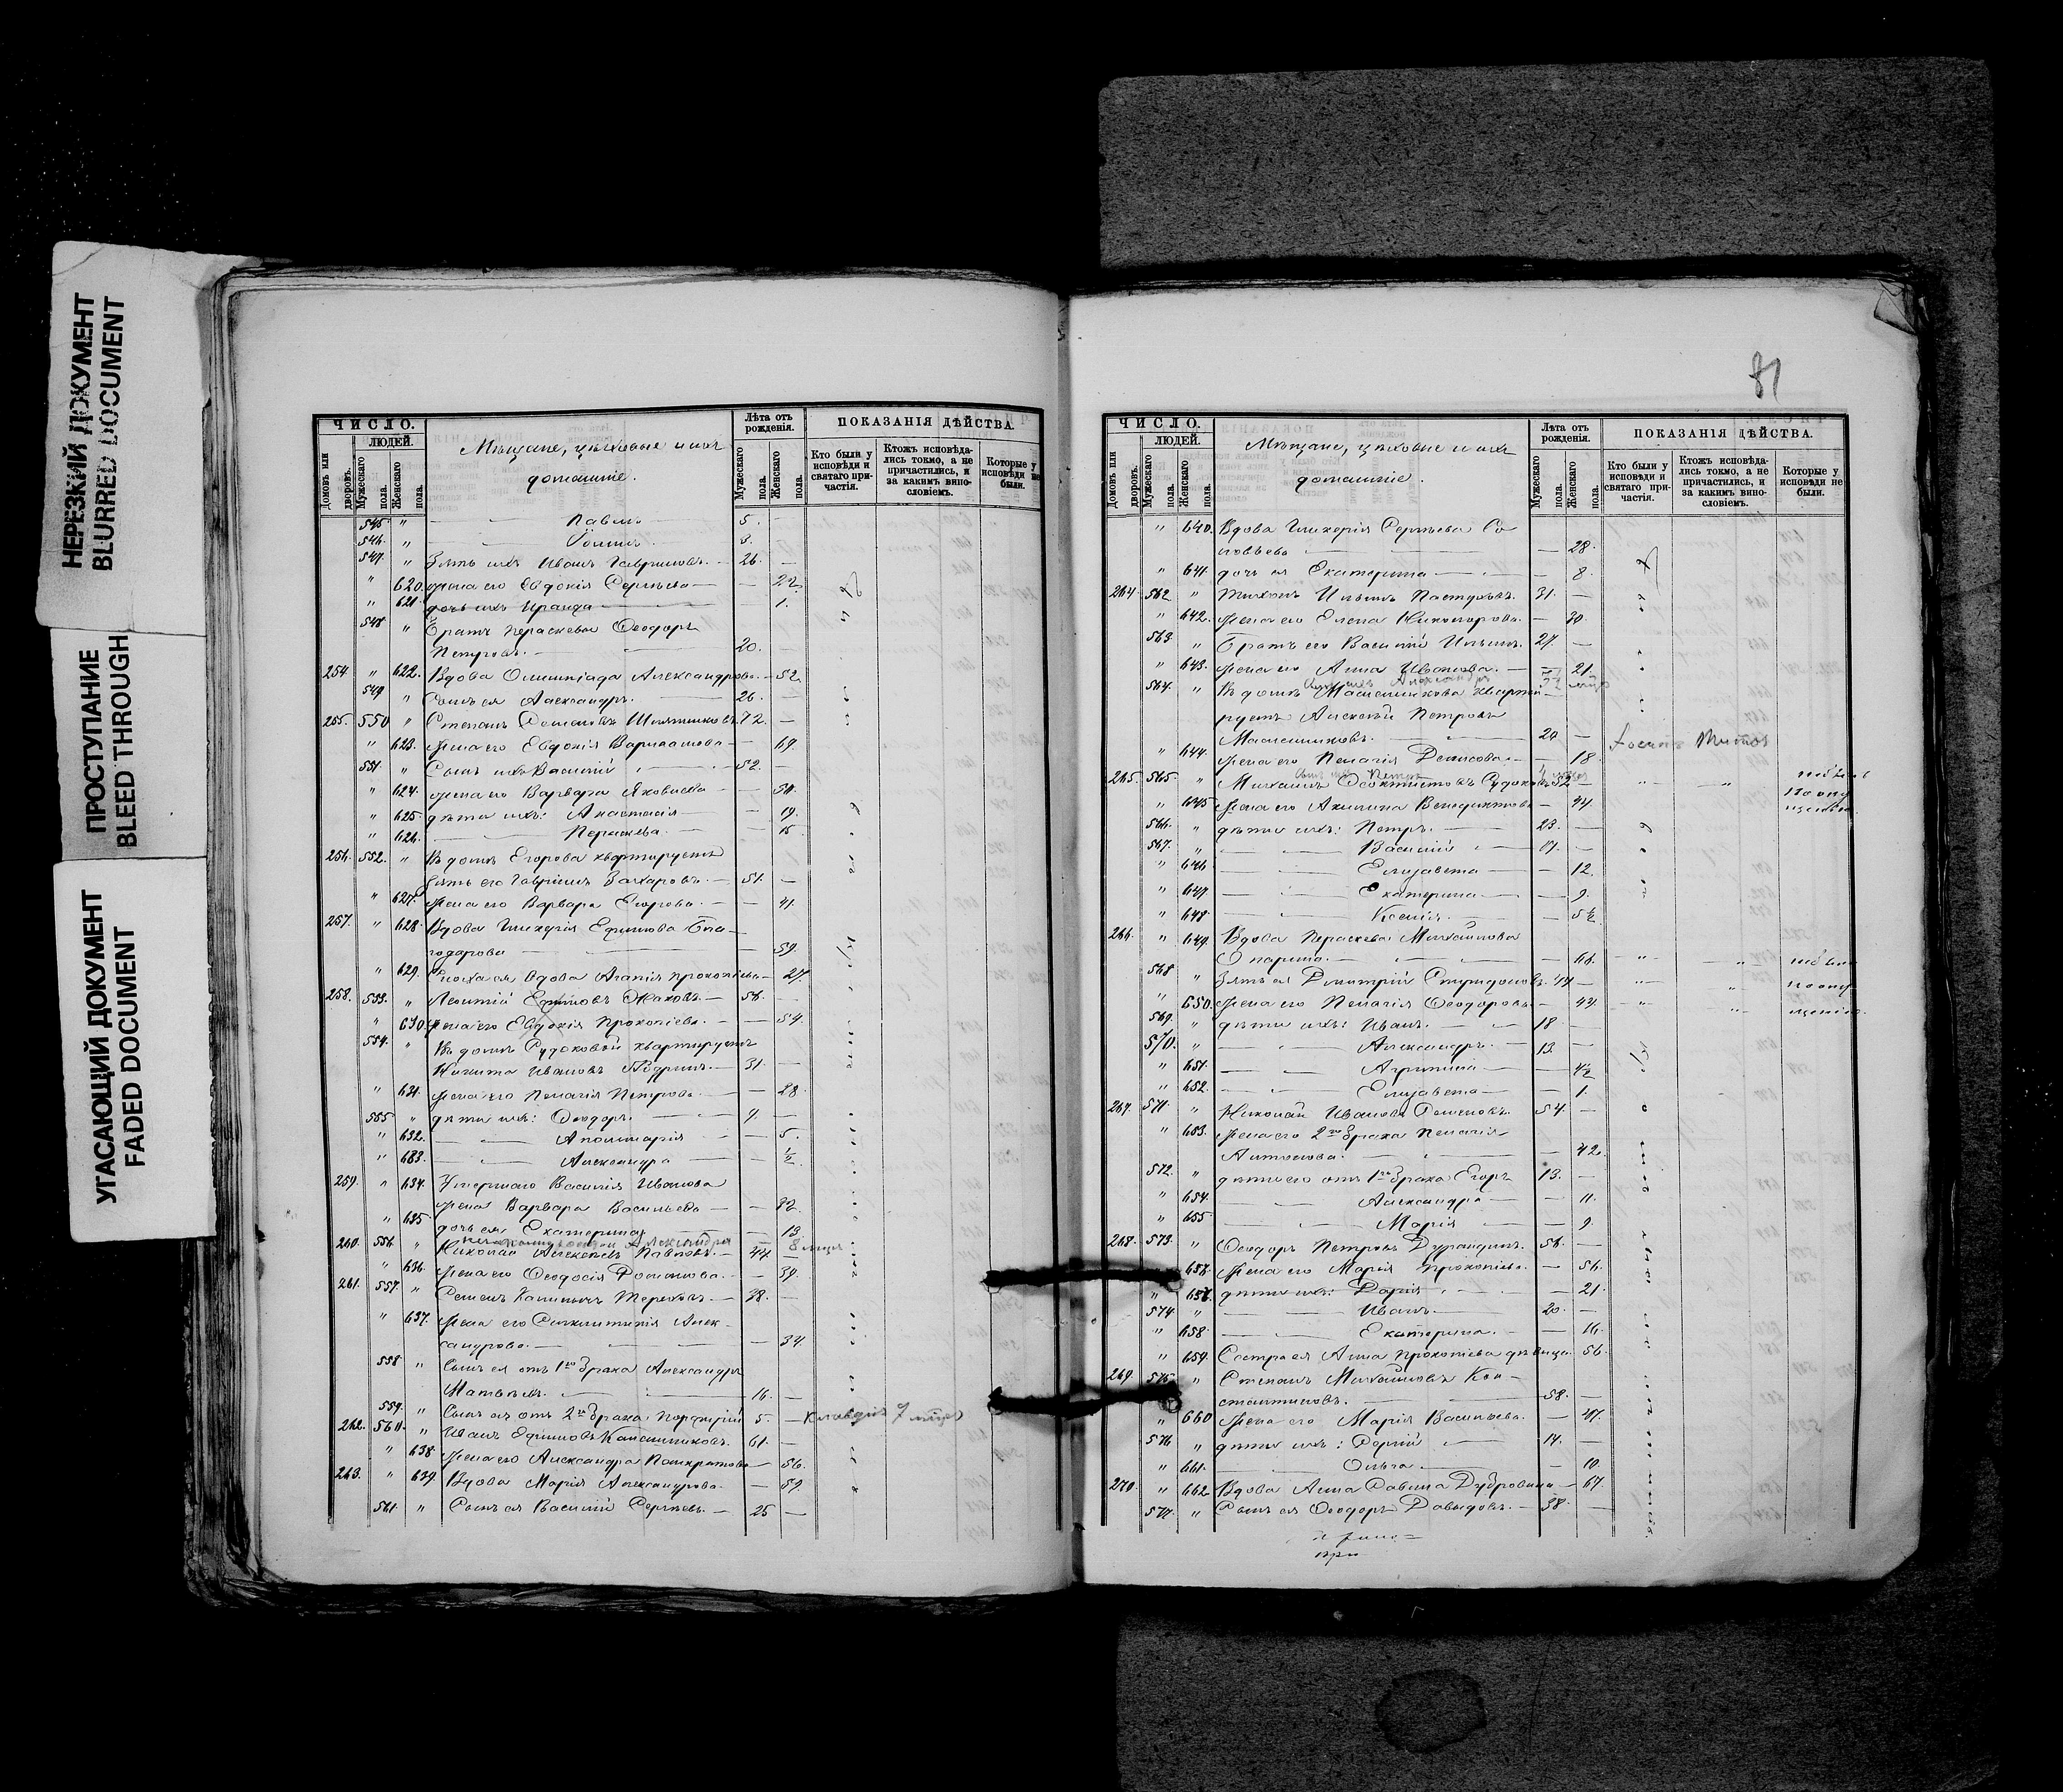 НЕРЕЗКИЙ ДОКУМЕНТ
BLURRED DOCUMENT
ПРОСТУПАНИЕ
BLEED THROUGH
УГАСАЮЩИЙ ДОКУМЕНТ
FADED DOCUMENT
ЧИСЛО.
ЛЮДЕЙ.
Домовъ или дворовъ.
Мужескаго пола.
Женскаго пола.
Мѣщане, цѣховые и ихъ
домашніе.
Лѣта отъ рожденія.
Мужескаго пола.
Женскаго пола.
ПОКАЗАНІЯ ДѢЙСТВА.
Кто были у исповѣди и святаго причастія.
Ктожъ исповѣдались токмо, а не причастились, и за какимъ винословіемъ.
Которые у исповѣди не были.
545 " Павелъ 5. —
546. " 3.
547. " Зять ихъ Иванъ Гавриловъ. — 26. —
" 620. Жена его Евдокія Сергѣева — — 22.
" 621. дочь ихъ Ираида — 1.
548 " Братъ Параскевы Ѳеодоръ
Петровъ. — 20. —
254. " 622. Вдова Олимпіада Александрова. — 52.
549 " Сынъ ея Александръ. 26. —
255. 550 " Степанъ Романовъ 72. —
" 623. Жена его Евдокія Варлаамова — — 69.
551. " Сынъ ихъ Василій — 52. —
" 624. Жена его Варвара Яковлева — — 50.
" 625 дѣти ихъ: Анастасія — — 19.
" 626. — Параскева. — — 15.
256. 552. " Въ домѣ Егорова квартируетъ
зять его Гавріилъ Захаровъ. — 51. —
" 627. Жена его Варвара Егорова. — — 41.
257. " 628. Вдова Гликерія Ефимова Бла—
годарова — — 59.
" 629. Сноха ея вдова Агапія Прокопіева — 27.
258. 553. " Леонтій Ефимовъ 56. —
" 630. Жена его Евдокія Прокопіева. — — 54.
554. " Въ домѣ Судоковой квартируетъ
Никита Ивановъ 31. —
" 631. Жена его Пелагія Петрова. — — 28.
555 " дѣти ихъ: Ѳеодоръ. — 7. —
" 632. — Аполинарія — — 5.
" 633. — Александра — — ½
259. " 634. Умершаго Василія Иванова
жена Варвара Васильева — — 32.
" 635. дочь ея Екатерина — 13
Александра — 8 мѣс.
260. 556. " Николай Алексѣевъ Павловъ. — 44. —
" 636. Жена его Ѳеодосія Романова. — — 39.
261. 557. " Семенъ Терехов. — 38. —
" 637. Жена его Синклитикія Алек—
сандрова. — — 34.
558 " Сынъ ея отъ 1го брака Александръ
Матвѣевъ. — 16. —
559. " Сынъ ея отъ 2го брака Порфирій 5. — Клавдія 7 мѣс.
262. 560. " Иванъ Ефимовъ Калашниковъ. 61. —
" 638 Жена его Александра Панкратова — 56.
263. " 639 Вдова Марія Александрова. — — 52.
561 " Сынъ ея Василій Сергѣевъ. — 25 —
81
ЧИСЛО.
ЛЮДЕЙ.
Домовъ или дворовъ.
Мужескаго пола.
Женскаго пола.
Мѣщане, цѣховые и ихъ
домашніе.
Лѣта отъ рожденія.
Мужескаго пола.
Женскаго пола.
ПОКАЗАНІЯ ДѢЙСТВА.
Кто были у исповѣди и святаго причастія.
Ктожъ исповѣдались токмо, а не причастились, и за какимъ винословіемъ.
Которые у исповѣди не были.
" 640. Вдова Гликерія Сергѣева Со
ловьева — — 28.
" 641. дочь ея Екатерина — — 8.
264. 562 " Тихонъ Ильинъ Пастуховъ. 31. —
" 642. Жена его Елена Никонорова. — — 30.
563. " Братъ его Василій Ильинъ. 27. —
" 643. Жена его Анна Иванова. — — 21.
Александръ
564. " Въ домѣ Масленикова кварти
руетъ Алексѣй Петровъ
Маслениковъ. — 20 —
" 644. Жена его Пелагія Денисова. — — 18.
Сынъ ихъ Петръ
265. 565. " Михаилъ Ѳеоктистовъ Судоковъ 52 — не были
" 645 Жена его Акилина Венедиктова — 44. по опу
щенію.
566. " дѣти ихъ: Петръ. — 23. —
567. " — Василій — 17. —
" 646 — Елизавета — — 12.
" 647. — Екатерина — — 9.
" 648. — Ксенія. — — 5½
266. " 649. Вдова Параскева Михайлова
— 66. не были
568 " Зять ея Димитрій Спиридоновъ. 49 — по опу
" 650. Жена его Пелагія Ѳеодорова. — 44. щенію.
569. " дѣти ихъ: Иванъ. — 18 —
570. " — Александръ. — 13. —
" 651. — — 4½
" 652. — Елизавета — — 1.
267. 571. " Николай Ивановъ Семеновъ. 54. —
" 653. Жена его 2го брака Пелагія
Антонова. — — 42.
572. " дѣти его отъ 1го брака Егоръ 13. —
" 654. — Александра — — 11.
" 655 — Марія — — 9.
268. 573. " Ѳеодоръ Петровъ Дурандинъ. 56. —
Жена его Марія Прокопіева. — 56.
" дѣти ихъ: Дарія — — 21.
574. " — Иванъ — 20. —
" 658. — Екатерина. — — 16.
" 659. Сестра ея Анна Прокопіева дѣвица. 56.
269. 575. " Степанъ Михайловъ Кон—
стантиновъ. — 58. —
" 660 Жена его Марія Васильева. — 47.
576 " дѣти ихъ: Сергій — 14. —
" 661. — Ольга — — 10.
270. " 662. Вдова Анна Савина Дубровина — 67.
577. " Сынъ ея Ѳеодоръ Давыдовъ. — 38. —